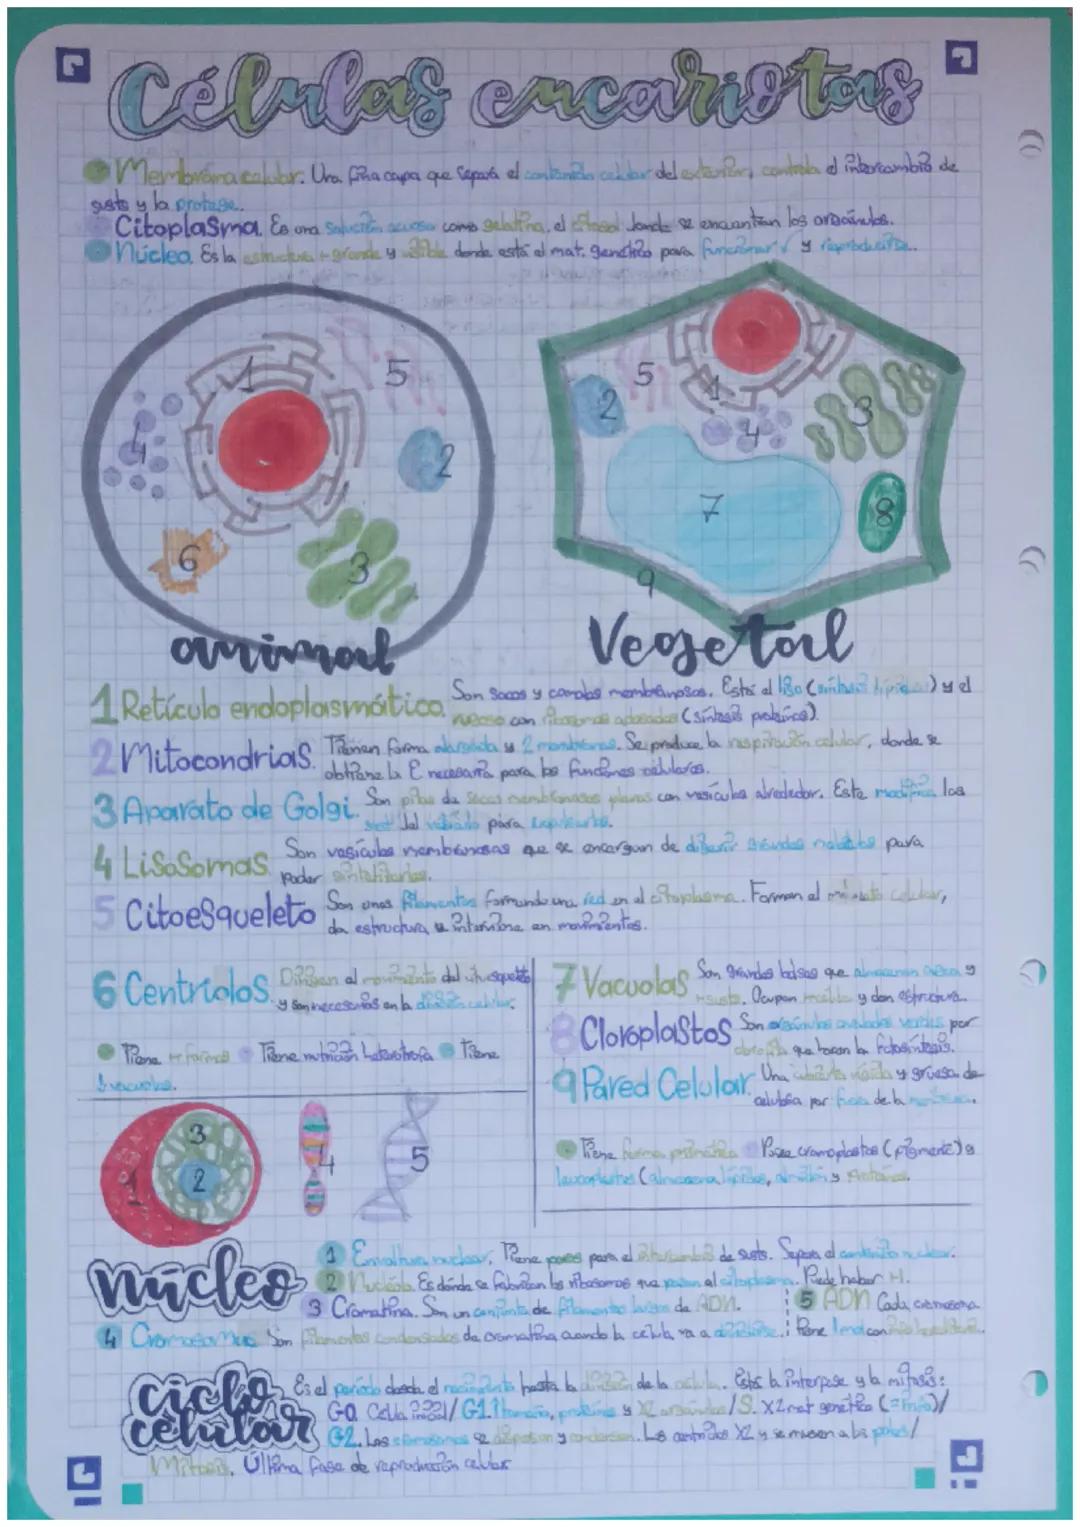 Células eucariotas
Membrana celular. Una fina capa que separa el contenido celular del exterior, controla el intercambio de
susts y la protege.
Citoplasma. Es una solución acuosa como gelatina, el citosol donde se encuentran los orgánulos.
Núcleo. Es la estructura + grande y visible donde está el mat. genético para funcionar y reproducirse.
1 5 4 2 6 3
5 2 1 4 3 7 8 9
animal Vegetal
1 Retículo endoplasmático. Son sacos y canales membranosos. Está el liso (síntesis lípidos) y el
rugoso con ribosomas adosados (síntesis proteínas).
2 Mitocondrias. Tienen forma alargada y 2 membranas. Se produce la respiración celular, donde se
obtiene la E necesaria para las funciones celulares.
3 Aparato de Golgi. Son pilas de sacos membranosos planos con vesículas alrededor. Este modifica las
sust del retículo para
4 Lisosomas. Son vesículas membranosas que se encargan de digerir grandes para
poder
5 Citoesqueleto Son unos filamentos formando una red en el citoplasma. Forman el celular,
da estructura e interviene en movimientos.
6 Centriolos. Dirigen el movimiento del citoesqueleto
y son necesarios en la división celular.
Tiene formas Tiene nutrición heterótrofa Tiene
vacuolas.
7 Vacuolas Son grandes bolsas que almacenan agua y
susts. Ocupan mucho y dan estructura.
8 Cloroplastos Son orgánulos ovalados verdes por
clorofila que hacen la fotosíntesis.
9 Pared Celular. Una cubierta rígida y gruesa de
celulosa por fuera de la membrana.
Tiene forma prismática Posee cromoplastos (pigmento) y
leucoplastos (almacena lípidos, almidón y proteínas.
1 2 3 4 5
núcleo
1 Envoltura nuclear. Tiene poros para el intercambio de susts. Separa el contenido nuclear.
2 Nucléolo. Es dónde se fabrican los ribosomas que pasan al citoplasma. Puede haber +1.
3 Cromatina. Son un conjunto de filamentos largos de ADN.
5 ADN Cada cromosoma
4 Cromosomas Son filamentos condensados de cromatina cuando la célula va a dividirse.
tiene 1 mol con
ciclo celular Es el período desde el nacimiento hasta la división de la célula. Está la interfase y la mitosis:
G0 Célula inicial/ G1. ↑tamaño, proteínas y X2 orgánulos/ S. X2 mat genético
G2. Los cromosomas se y condensan. Los centriolos X2 y se mueven a los polos/
Mitosis. Última fase de reproducción celular